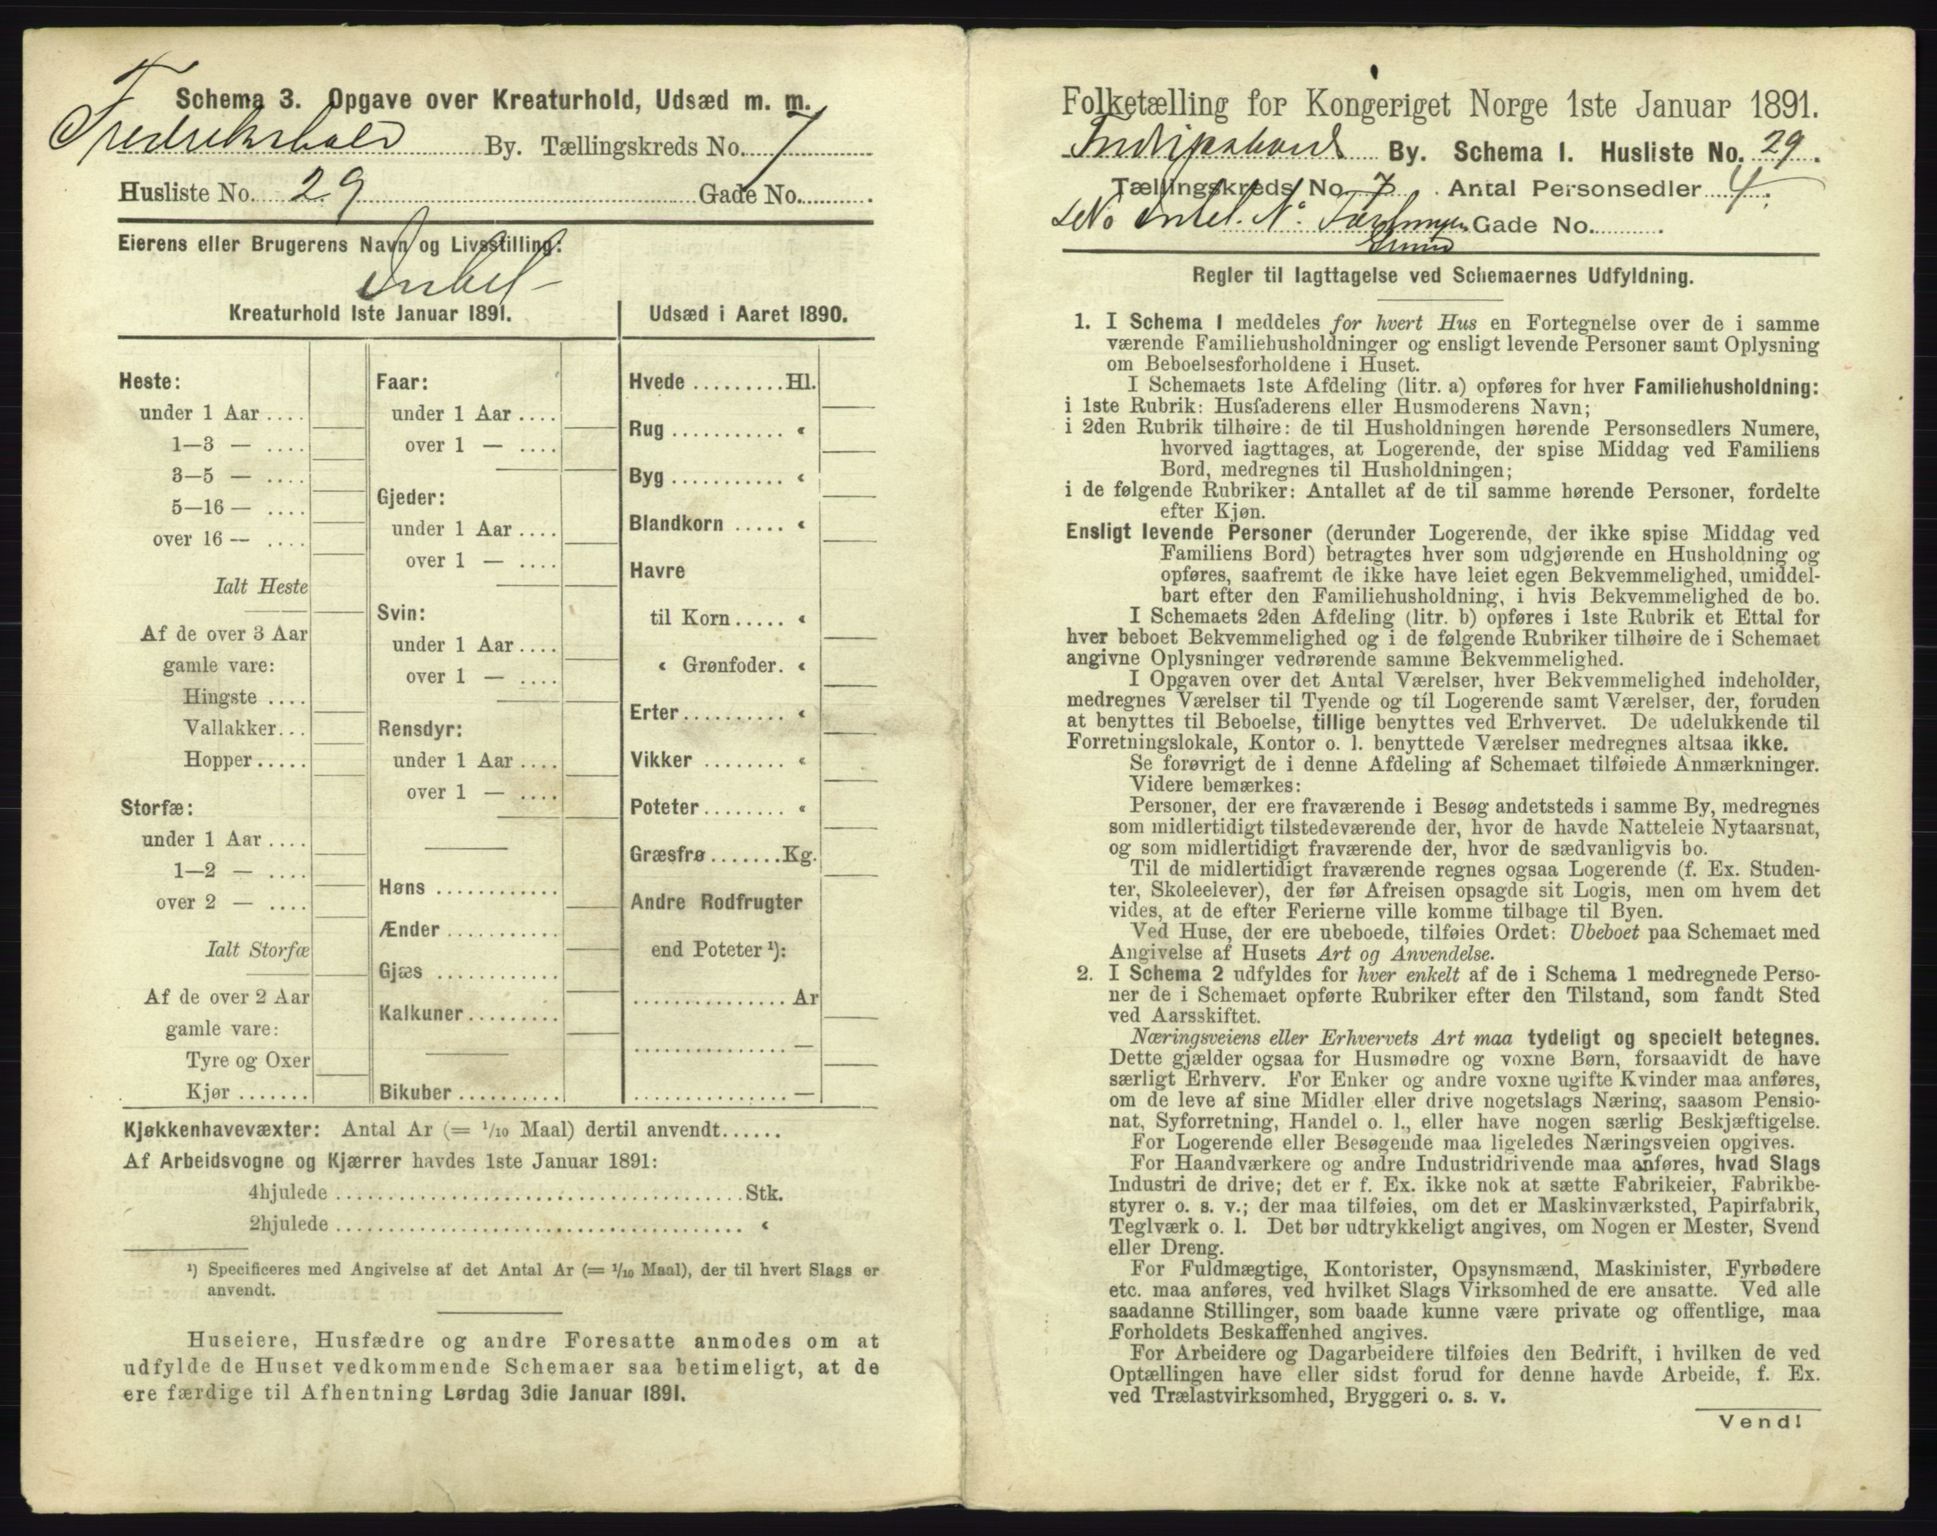 Schema 3. Opgave over Kreaturhold, Udsæd m. m.
Fredrikshald By. Tællingskreds No. 7
Husliste No. 29 Gade No.
Eierens eller Brugerens Navn og Livsstilling:
Kreaturhold 1ste Januar 1891.
Heste:
under 1 Aar ....
1—3 — ....
3—5 — ....
5—16 — ....
over 16 — ....
Ialt Heste
Af de over 3 Aar
gamle vare:
Hingste ....
Vallakker...
Hopper.....
Storfæ:
under 1 Aar ....
1—2 — ....
over 2 — ....
Ialt Storfæ
Af de over 2 Aar
gamle vare:
Tyre og Oxer
Kjør .......
Faar:
under 1 Aar ....
over 1 — ....
Gjeder:
under 1 Aar ....
over 1 — ....
Svin:
under 1 Aar ....
over 1 — ....
Rensdyr:
under 1 Aar ....
over 1 — ....
Høns ............
Ænder ...........
Gjæs ............
Kalkuner .........
Bikuber ..........
Udsæd i Aaret 1890.
Hvede .........Hl.
Rug ........... «
Byg ........... «
Blandkorn ..... «
Havre
til Korn ..... «
« Grønfoder. «
Erter.......... «
Vikker ........ «
Poteter........ «
Græsfrø .......Kg.
Andre Rodfrugter
end Poteter ¹):
............... Ar
............... —
............... —
Kjøkkenhavevæxter: Antal Ar (= 1/10 Maal) dertil anvendt......
Af Arbeidsvogne og Kjærrer havdes 1ste Januar 1891:
4hjulede ........................................ Stk.
2hjulede ........................................ «
¹) Specificeres med Angivelse af det Antal Ar (= 1/10 Maal), der til hvert Slags er
anvendt.
Huseiere, Husfædre og andre Foresatte anmodes om at
udfylde de Huset vedkommende Schemaer saa betimeligt, at de
ere færdige til Afhentning Lørdag 3die Januar 1891.
Folketælling for Kongeriget Norge 1ste Januar 1891.
By. Schema 1. Husliste No. 29.
Tællingskreds No. 7. Antal Personsedler 4.
Gade No.
Regler til Iagttagelse ved Schemaernes Udfyldning.
1. I Schema 1 meddeles for hvert Hus en Fortegnelse over de i samme
værende Familiehusholdninger og ensligt levende Personer samt Oplysning
om Beboelsesforholdene i Huset.
I Schemaets 1ste Afdeling (litr. a) opføres for hver Familiehusholdning:
i 1ste Rubrik: Husfaderens eller Husmoderens Navn;
i 2den Rubrik tilhøire: de til Husholdningen hørende Personsedlers Numere,
hvorved iagttages, at Logerende, der spise Middag ved Familiens
Bord, medregnes til Husholdningen;
i de følgende Rubriker: Antallet af de til samme hørende Personer, fordelte
efter Kjøn.
Ensligt levende Personer (derunder Logerende, der ikke spise Middag ved
Familiens Bord) betragtes hver som udgjørende en Husholdning og
opføres, saafremt de ikke have leiet egen Bekvemmelighed, umiddel-
bart efter den Familiehusholdning, i hvis Bekvemmelighed de bo.
I Schemaets 2den Afdeling (litr. b) opføres i 1ste Rubrik et Ettal for
hver beboet Bekvemmelighed og i de følgende Rubriker tilhøire de i Schemaet
angivne Oplysninger vedrørende samme Bekvemmelighed.
I Opgaven over det Antal Værelser, hver Bekvemmelighed indeholder,
medregnes Værelser til Tyende og til Logerende samt Værelser, der, foruden
at benyttes til Beboelse, tillige benyttes ved Erhvervet. De udelukkende til
Forretningslokale, Kontor o. l. benyttede Værelser medregnes altsaa ikke.
Se forøvrigt de i denne Afdeling af Schemaet tilføiede Anmærkninger.
Videre bemærkes:
Personer, der ere fraværende i Besøg andetsteds i samme By, medregnes
som midlertidigt tilstedeværende der, hvor de havde Natteleie Nytaarsnat,
og som midlertidigt fraværende der, hvor de sædvanligvis bo.
Til de midlertidigt fraværende regnes ogsaa Logerende (f. Ex. Studen-
ter, Skoleelever), der før Afreisen opsagde sit Logis, men om hvem det
vides, at de efter Ferierne ville komme tilbage til Byen.
Ved Huse, der ere ubeboede, tilføies Ordet: Ubeboet paa Schemaet med
Angivelse af Husets Art og Anvendelse.
2. I Schema 2 udfyldes for hver enkelt af de i Schema 1 medregnede Perso-
ner de i Schemaet opførte Rubriker efter den Tilstand, som fandt Sted
ved Aarsskiftet.
Næringsveiens eller Erhvervets Art maa tydeligt og specielt betegnes.
Dette gjælder ogsaa for Husmødre og voxne Børn, forsaavidt de have
særligt Erhverv. For Enker og andre voxne ugifte Kvinder maa anføres,
om de leve af sine Midler eller drive nogetslags Næring, saasom Pensio-
nat, Syforretning, Handel o. l., eller have nogen særlig Beskjæftigelse.
For Logerende eller Besøgende maa ligeledes Næringsveien opgives.
For Haandværkere og andre Industridrivende maa anføres, hvad Slags
Industri de drive; det er f. Ex. ikke nok at sætte Fabrikeier, Fabrikbe-
styrer o. s. v.; der maa tilføies, om det er Maskinværksted, Papirfabrik,
Teglværk o. l. Det bør udtrykkeligt angives, om Nogen er Mester, Svend
eller Dreng.
For Fuldmægtige, Kontorister, Opsynsmænd, Maskinister, Fyrbødere
etc. maa anføres, ved hvilket Slags Virksomhed de ere ansatte. Ved alle
saadanne Stillinger, som baade kunne være private og offentlige, maa
Forholdets Beskaffenhed angives.
For Arbeidere og Dagarbeidere tilføies den Bedrift, i hvilken de ved
Optællingen have eller sidst forud for denne havde Arbeide, f. Ex.
ved Trælastvirksomhed, Bryggeri o. s. v.
Vend!